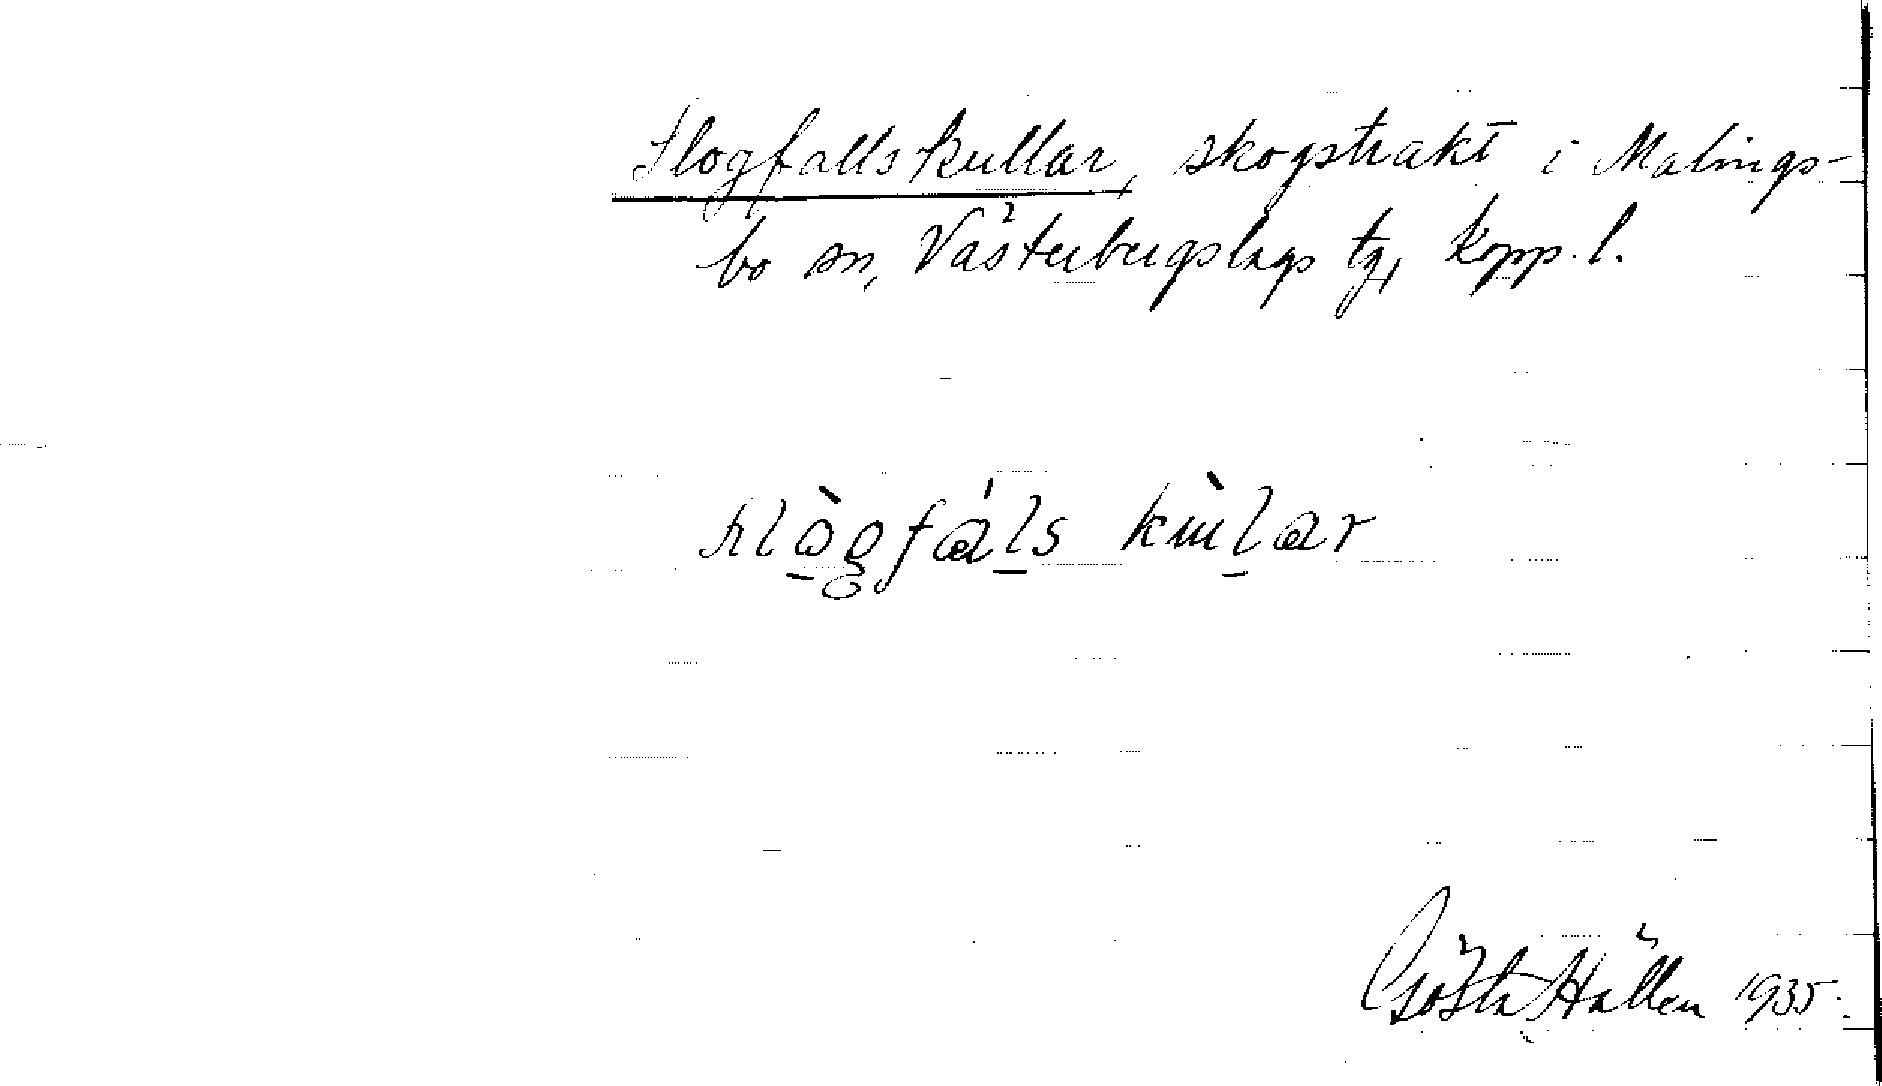 Slogfallskullar, skogstrakt i Malings-
bo sn, Västerbergslags tg, Kopp. l.
Gösta Hällen 1935.